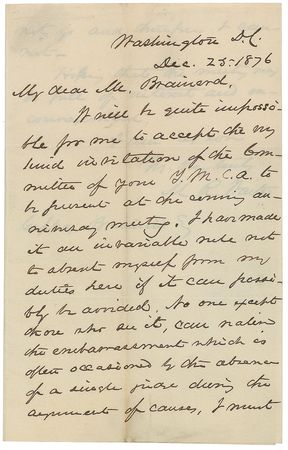 Washington D.C.
Dec. 25-1876
My dear Mr. Brainard,
It will be quite impossi-
ble for me to accept the very
kind invitation of the Com-
mittee of your Y.M.C.A. to
be present at the coming an-
niversary meeting. I have made
it an invariable rule not
to absent myself from my
duties here if it can possi-
bly be avoided. No one except
those who see it, can realize
the embarrassment which is
often occasioned by the absence
of a single judge during the
arguments of causes. I must